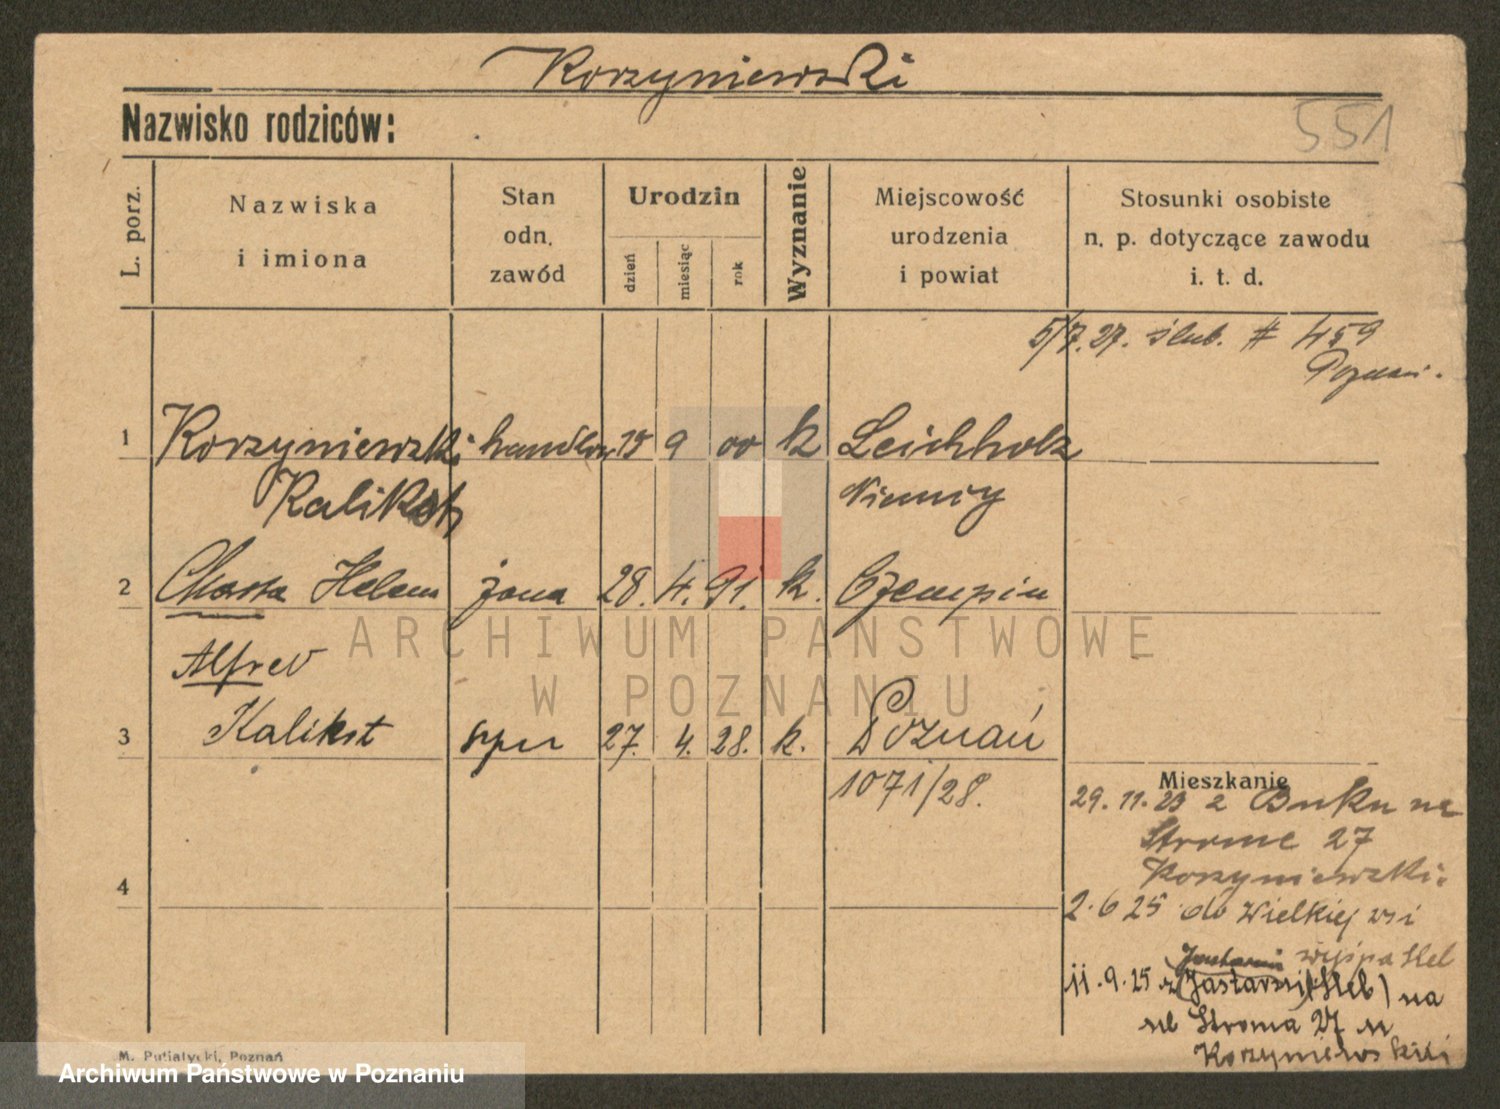 Korzyniewski
Nazwisko rodziców:
551
L. porz.
Nazwiska
i imiona
Stan
odn.
zawód
Urodzin
dzień
miesiąc
rok
Wyznanie
Miejscowość
urodzenia
i powiat
Stosunki osobiste
n. p. dotyczące zawodu
i. t. d.
5/7.27. ślub. # 459
Poznań.
1 Korzyniewski 15 9 00 k Leichholz
Kalikst Niemcy
2 Helena żona 28. 4. 91. k. Czempin
ARCHIWUM PAŃSTWOWE
W POZNANIU
Alfred
3 Kalikst syn 27. 4. 28. k. Poznań
1071/28.
Mieszkanie
29. 11. 23 z Buku na
Strome 27
Korzyniewski.
4
2. 6 25 do Wielkiej wsi
wyspa Hel
11. 9. 25 z (Jastarni) (Hel) na
Stroma 27 u
M. Putiatycki, Poznań
Archiwum Państwowe w Poznaniu